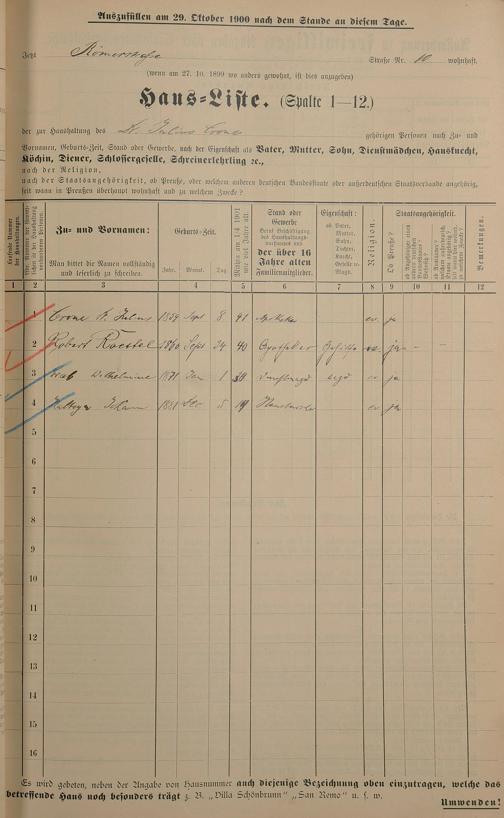 Auszufüllen am 29. Oktober 1900 nach dem Stande an diesem Tage.
Jetzt Römerstraße Straße Nr. 10 wohnhaft.
(wenn am 27. 10. 1899 wo anders gewohnt, ist dies anzugeben)
Haus-Liste. (Spalte 1—12.)
der zur Haushaltung des Julius Crone gehörigen Personen nach Zu- und
Vornamen, Geburts-Zeit, Stand oder Gewerbe, nach der Eigenschaft als Vater, Mutter, Sohn, Dienstmädchen, Hausknecht,
Köchin, Diener, Schlossergeselle, Schreinerlehrling ec.,
nach der Religion,
nach der Staatsangehörigkeit, ob Preuße, oder welchem anderen deutschen Bundesstaate oder außerdeutschen Staatsverbande angehörig,
seit wann in Preußen überhaupt wohnhaft und zu welchem Zwecke?
Laufende Nummer der Haushaltungen.
Zu- und Vornamen:
Man bittet die Namen vollständig und leserlich zu schreiben.
Geburts-Zeit.
Jahr. Monat. Tag
Mithin am 1/4 1901 wie viel Jahre alt.
Stand oder Gewerbe
der über 16 Jahre alten Familienmitglieder.
Eigenschaft:
ob Vater, Mutter, Sohn, Tochter, Knecht, Geselle o. Magd.
Religion
Staatsangehörigkeit.
Ob Preuße?
Bemerkungen.
1 2 3 4 5 6 7 8 9 10 11 12
1 Crone Julius 1859 Sept 8 41 ev ja
2 Robert Roestel 1860 Sept 24 40 Apotheker ev. ja
3 Wilhelmine 1871 Jan 1 ev ja
4 Johann 5 19 ev ja
5
6
7
8
9
10
11
12
13
14
15
16
Es wird gebeten, neben der Angabe von Hausnummer auch diejenige Bezeichnung oben einzutragen, welche das
betreffende Haus noch besonders trägt z. B. „Villa Schönbrunn“ „San Remo“ u. s. w.
Umwenden!